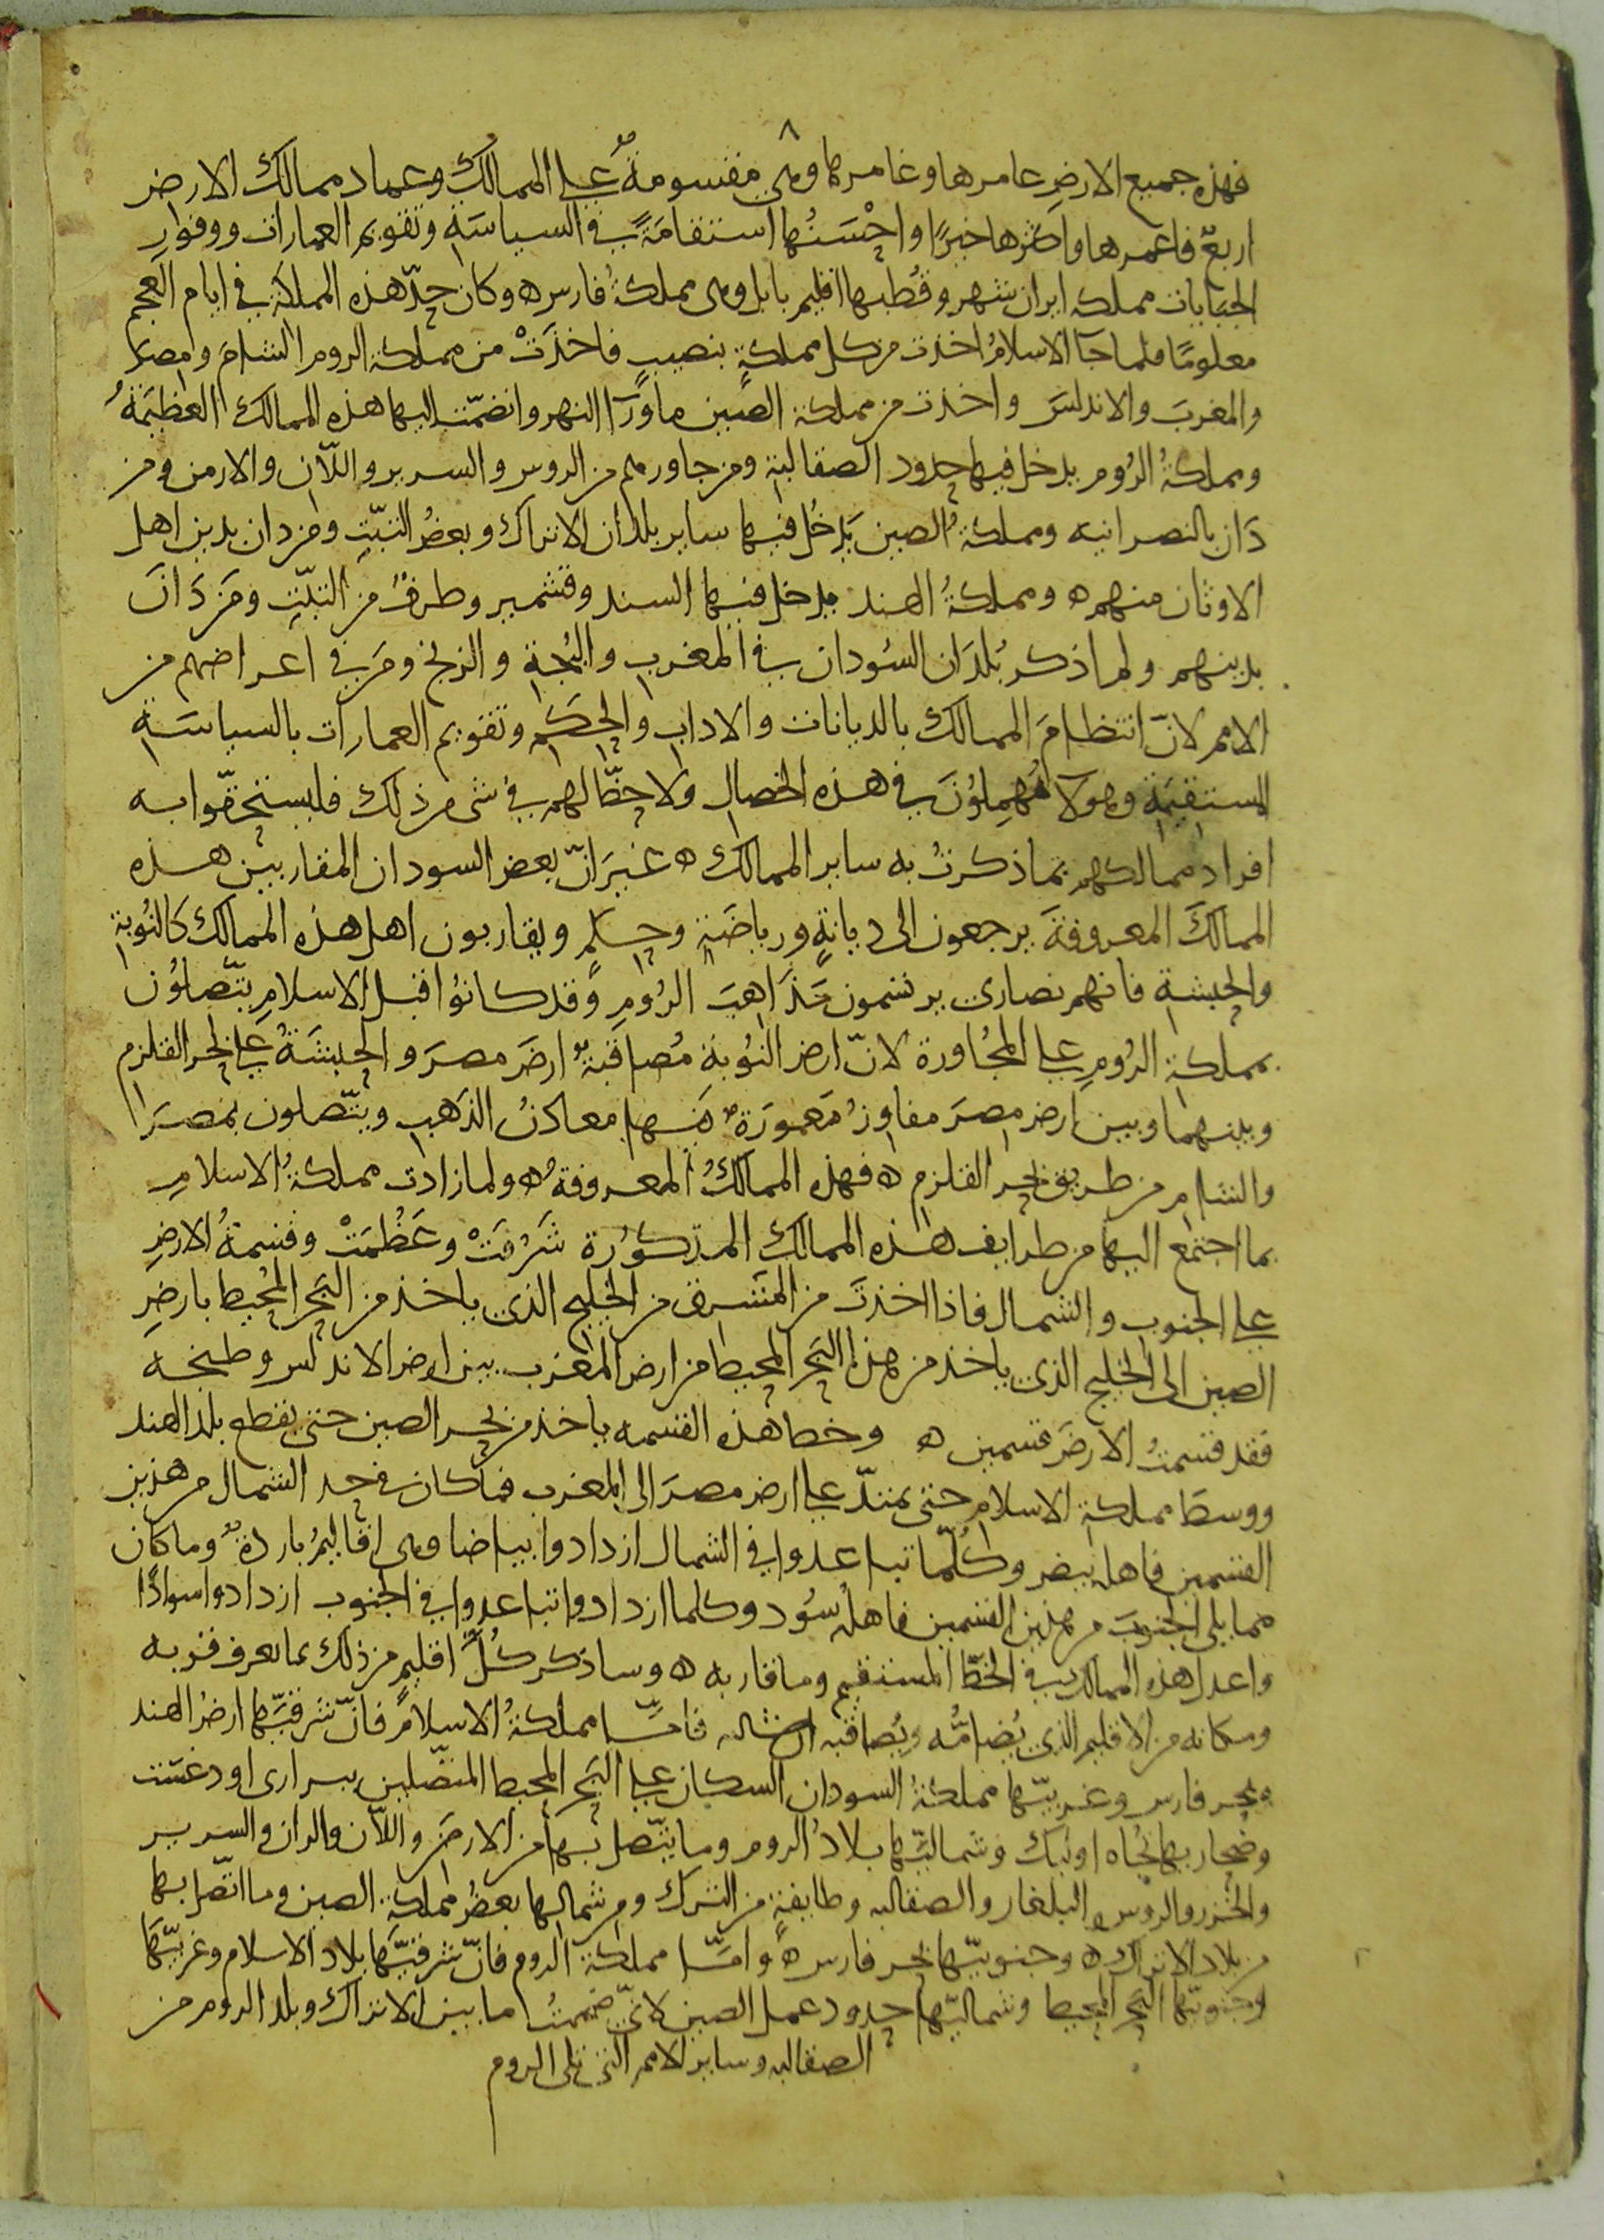 ٨
فهذه جميع الارضِ عامرها وغامرها وهي مقسومةٌ على الممالك وعماد ممالك الارض
اربعٌ فاعمرها واكثرها خيرًا واحْسَنُها استقامَةً في السياسَة وتقويم العمارات ووفور
الجبايات مملكه ايران شهر وقُطبها اقليم بابل وهى مملكةُ فارس ه وكان حدّ هذه المملكة في ايام العجم
معلومًا فلما جآ الاسلامُ اخذت من كل مملكةٍ بنصيبٍ فاخذَتْ من مملكة الروم الشامَ ومصرَ
والمغربَ والاندلسَ واخذت من مملكة الصّين ماورآ النهر وانضمّت اليها هذه الممالك العظيمَةُ
ومملكةُ الرُوم يدخل فيها حدود الصقالبة ومن جاورهم من الروس والسرير واللّان والارمن ومن
دَان بالنصرانيه ومملكةُ الصين يَدخُل فيها ساير بلدان الاتراك وبعضُ التبّتِ ومن دان بدين اهل
الاوثان منهم ه ومملكةُ الهند يدخل فيها السند وقشمير وطرفٌ من التبّتِ ومَن دَانَ
بدينهم ولم اذكر بُلدَان السُودان في المغرب والبُجة والزنج ومَن في اعراضهم من
الامم لانّ انتظامَ الممالك بالديانات والاداب والحِكَم وتقويم العمارات بالسياسَة
المستقيمَة وهولآ مُهمِلوُنَ في هذه الخصال ولا حظّ لهم في شى من ذلك فيستحقّوا به
افراد ممالكهم بما ذكرتُ به ساير الممالك ه غيرَ انّ بعض السودان المقاربين هذه
الممالكَ المعروفةَ يرجعون الى ديانةٍ ورياضَةٍ وحِكمٍ ويقاربون اهل هذه الممالك كالنُوبة
والحبشة فانهم نصارى يرتسمون مَذَاهبَ الرُوم وقد كانوُا قبل الاسلام يتّصلوُن
بمملكة الرُوم على المجُاورة لانّ ارض النُوبة مُصاقبَةٌ ارضَ مصرَ والحبشَةُ على بحر القلزم
وبينهما وبين ارض مصرَ مفاوزُ مَعمورَةٌ فيها معادنُ الذهَب ويتّصلون بمصرَ
والشام من طريق بحر القلزم ه فهذه الممالكُ المعروفةُ ه ولما زادت مملكةُ الاسلامِ
بما اجتمع اليها من طرايف هذه الممالك المذكوُرة شَرُفَتْ وعَظُمَتْ وقسمةُ الارضِ
على الجنوب والشمال فاذا اخذتَ من المَشرق من الخليج الذى ياخذ من البَحر المحُيط بارضِ
الصين الى الخليج الذى ياخذ من هذا البَحر المحيط من ارض المغرب بين ارض الاندلس وطنجه
فقد قسمتُ الارضَ قسمين ه وخط هذه القسمه ياخذ من بحر الصين حتى يقطع بلد الهند
ووسط مملكة الاسلام حتى يمتدّ على ارض مصرَ الى المغرب فما كان في حد الشمال من هذين
القسمين فاهله بيض وكُلّما تباعدوا في الشمال ازدادوا بياضا وهى اقاليمُ باردةٌ وما كان
مما يلى الجنوبَ من هذين القسمين فاهلهُ سُود وكلما ازدادوا تباعدوا في الجنوب ازدادوا سوادًا
واعدل هذه الممالك في الخطّ المستقيم وما قاربه ه وساذكر كُلَّ اقليمٍ من ذلك بما يعرف قربه
ومكانه من الاقليم الذى يُضامُّه ويُصاقبه فامّا مملكةُ الاسلام فانّ شرقيَّها ارضُ الهند
وبحر فارس وغربيّها مملكةُ السودان السكان على البَحر المحيط المتّصلين ببرارى اودغست
وصحاريها تجُاه اوليك وشماليَّها بلادُ الروم وما يتّصل بها من الارمن واللّان والران والسرير
والخزر والروس والبلغار والصقالبه وطايفةٍ من الترك ومن شمالها بعضُ مملكة الصين وما اتّصل بها
من بلاد الاتراك ه وجنوبيّها بحر فارس ه وامّا مملكة الروم فانّ شرقيَّها بلاد الاسلام وغربيَّها
وجنوبيّها البَحر المحيط وشماليّها حدود عمل الصين لانّى ضممتُ ما بين الاتراك وبلد الروم من
الصقالبه وساير الامم التى تلى الروم